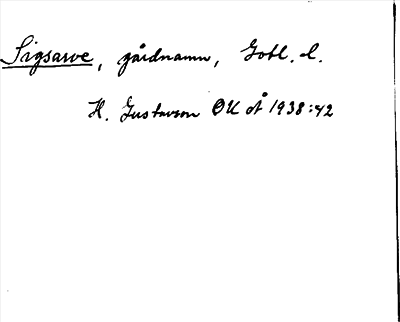 Sigsarve, gårdnamn, Gotl. l.
H. Gustavson OUÅ 1938:42